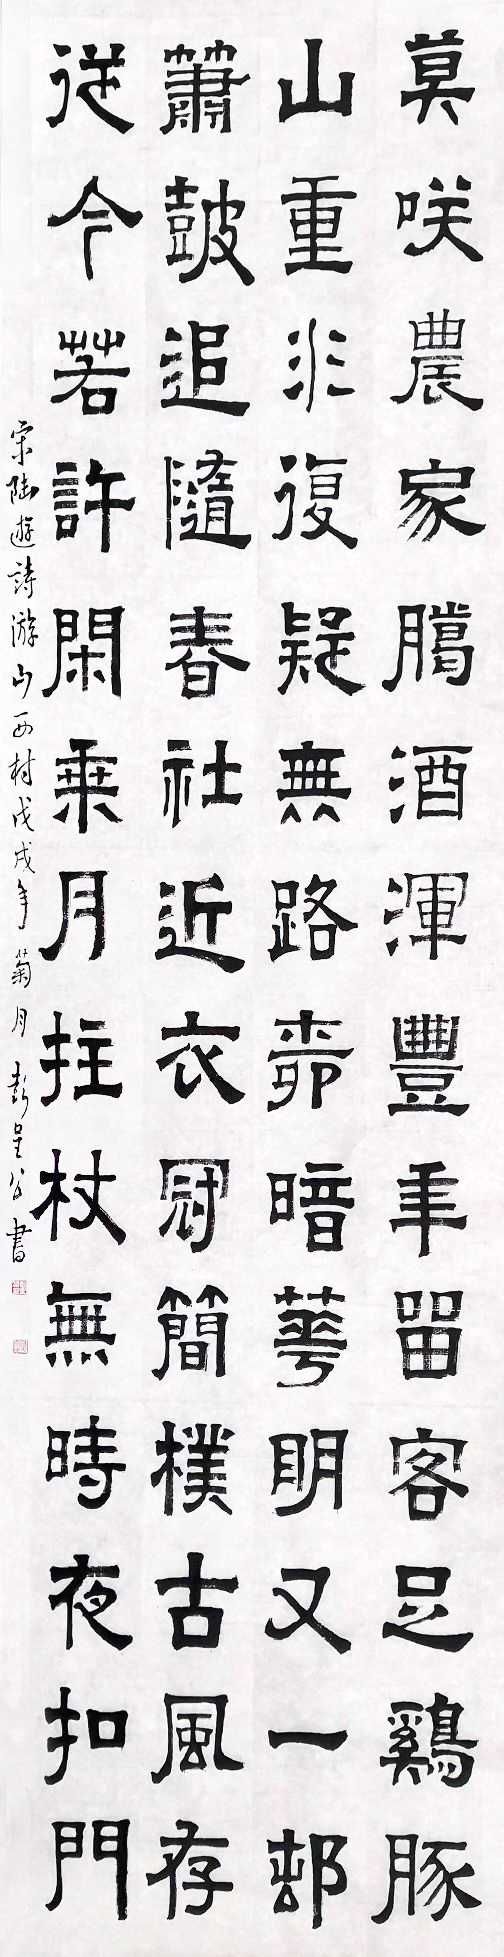 莫咲農家臈酒渾豐年留客足鷄豚
山重水復疑無路桺暗華明又一邨
簫鼓追隨春社近衣冠簡樸古風存
從今若許閑乗月拄杖無時夜扣門
宋陆遊詩游山西村戊戌年菊月彭呈公書